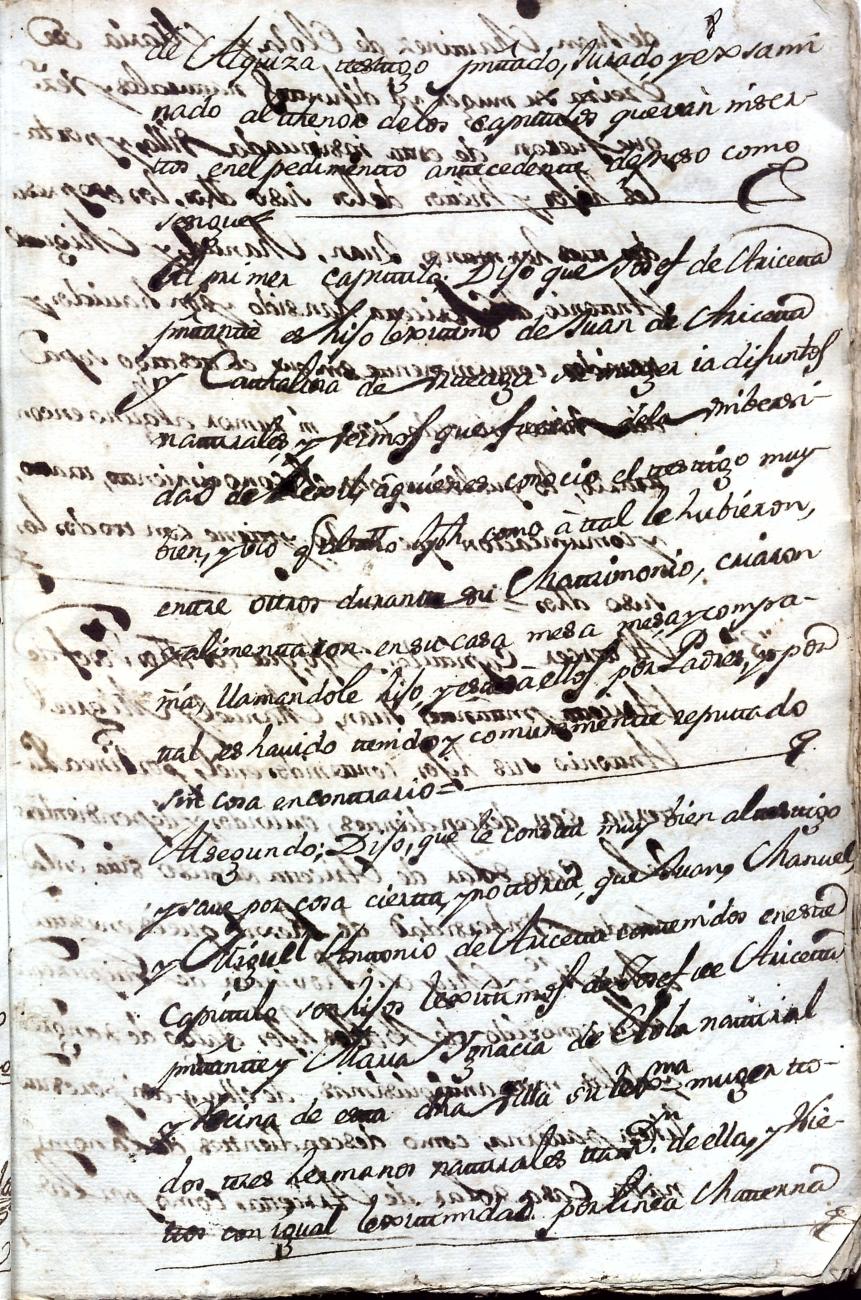 de Alquiza, testigo pntado, Jurado y exsami
nado al thenor de los capitulos que van inser-
tos en el pedimento antecedente depuso como
sesigue
Al primer capittulo. Dijo que Josef de Aricetta
pntante es hijo lexitimo de Juan de Aricetta
y Cattalina de su muger ia difuntos
naturales y vezinos que fueron de la Vnibersi-
dad de a quienes conocio el testigo muy
bien, y vio que como à ttal le hubieron,
entre ottros durante su Matrimonio, criaron
y alimentaron en su casa mesa y compa-
ñia, llamandole hijo, y este à ellos por Padres, y por
ttal es havido ttenido y comunmente reputtado
sin cosa en conttrario=
Al segundo; Dijo, que le constta muy bien al testigo
y save por cosa ciertta, y nottoria, que Juan, Manuel,
y Miguel Antonio de Aricetta conttenidos en este
Capitulo son hijos lexitimos de Josef de Aricetta
pntante y Maria Ygnacia de Elola natural
y vecina de esta dha Villa su lexma muger tto-
dos tres hermanos naturales ttamvn de ella, y Nie-
ttos con igual lexitimidad por linea Matterna